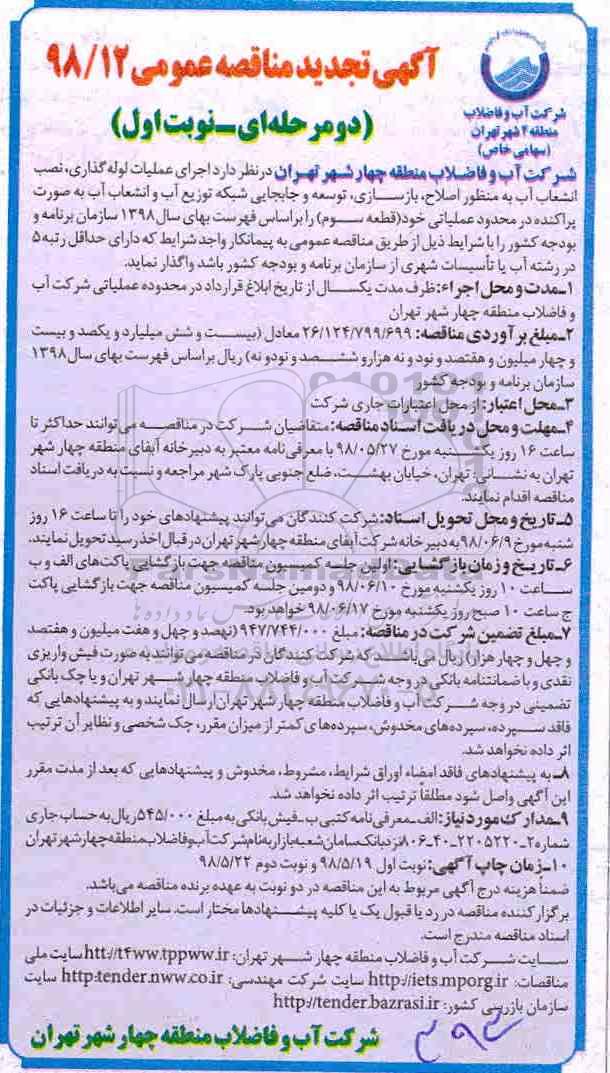 آگهی تجدید مناقصه عمومی ۹۸/۱۲
(دو مرحله‌ای ـ نوبت اول)
شرکت آب و فاضلاب
منطقه ۴ شهر تهران
(سهامی خاص)
شرکت آب و فاضلاب منطقه چهار شهر تهران در نظر دارد اجرای عملیات لوله گذاری، نصب
انشعاب آب به منظور اصلاح، بازسازی، توسعه و جابجایی شبکه توزیع آب و انشعاب آب به صورت
پراکنده در محدود عملیاتی خود (قطعه سوم) را براساس فهرست بهای سال ۱۳۹۸ سازمان برنامه و
بودجه کشور را با شرایط ذیل از طریق مناقصه عمومی به پیمانکار واجد شرایط که دارای حداقل رتبه ۵
در رشته آب یا تأسیسات شهری از سازمان برنامه و بودجه کشور باشد واگذار نماید.
۱ـ مدت و محل اجراء: ظرف مدت یکسال از تاریخ ابلاغ قرارداد در محدوده عملیاتی شرکت آب
و فاضلاب منطقه چهار شهر تهران
۲ـ مبلغ برآوردی مناقصه: ۲۶/۱۲۴/۷۹۹/۶۹۹ معادل (بیست و شش میلیارد و یکصد و بیست
و چهار میلیون و هفتصد و نود و نه هزار و ششصد و نود و نه) ریال براساس فهرست بهای سال ۱۳۹۸
سازمان برنامه و بودجه کشور
۳ـ محل اعتبار: از محل اعتبارات جاری شرکت
۴ـ مهلت و محل دریافت اسناد مناقصه: متقاضیان شرکت در مناقصه می‌توانند حداکثر تا
ساعت ۱۶ روز یکشنبه مورخ ۹۸/۰۵/۲۷ با معرفی نامه معتبر به دبیرخانه آبفای منطقه چهار شهر
تهران به نشانی: تهران، خیابان بهشت، ضلع جنوبی پارک شهر مراجعه و نسبت به دریافت اسناد
مناقصه اقدام نمایند.
۵ـ تاریخ و محل تحویل اسناد: شرکت کنندگان می‌توانند پیشنهادهای خود را تا ساعت ۱۶ روز
شنبه مورخ ۹۸/۰۶/۹ به دبیر خانه شرکت آبفای منطقه چهار شهر تهران در قبال اخذ رسید تحویل نمایند.
۶ـ تاریخ و زمان بازگشایی: اولین جلسه کمیسیون مناقصه جهت بازگشایی پاکت‌های الف و ب
ساعت ۱۰ روز یکشنبه مورخ ۹۸/۰۶/۱۰ و دومین جلسه کمیسیون مناقصه جهت بازگشایی پاکت
ج ساعت ۱۰ صبح روز یکشنبه مورخ ۹۸/۰۶/۱۷ خواهد بود.
۷ـ مبلغ تضمین شرکت در مناقصه: مبلغ ۹۴۷/۷۴۴/۰۰۰ (نهصد و چهل و هفت میلیون و هفتصد
و چهل و چهار هزار) ریال می‌باشد که شرکت کنندگان در مناقصه می‌توانند به صورت فیش واریزی
نقدی و یا ضمانتنامه بانکی در وجه شرکت آب و فاضلاب منطقه چهار شهر تهران و یا چک بانکی
تضمینی در وجه شرکت آب و فاضلاب منطقه چهار شهر تهران ارسال نمایند و به پیشنهادهایی که
فاقد سپرده، سپرده‌های مخدوش، سپرده‌های کمتر از میزان مقرر، چک شخصی و نظایر آن ترتیب
اثر داده نخواهد شد.
۸ـ به پیشنهادهای فاقد امضاء اوراق شرایط، مشروط، مخدوش و پیشنهادهایی که بعد از مدت مقرر
این آگهی واصل شود مطلقاً ترتیب اثر داده نخواهد شد.
۹ـ مدارک مورد نیاز: الف ـ معرفی نامه کتبی ب ـ فیش بانکی به مبلغ ۵۴۵/۰۰۰ ریال به حساب جاری
شماره ۲ـ۲۲۰۵۲۲۰ـ۴۰ـ۸۰۶ نزد بانک سامان شعبه بازار به نام شرکت آب و فاضلاب منطقه چهار شهر تهران
۱۰ـ زمان چاپ آگهی: نوبت اول ۹۸/۵/۱۹ و نوبت دوم ۹۸/۵/۲۲
ضمناً هزینه درج آگهی مربوط به این مناقصه در دو نوبت به عهده برنده مناقصه می‌باشد.
برگزار کننده مناقصه در رد یا قبول یک یا کلیه پیشنهادها مختار است. سایر اطلاعات و جزئیات در
اسناد مناقصه مندرج است.
سایت شرکت آب و فاضلاب منطقه چهار شهر تهران: htt://t4ww.tppww.ir سایت ملی
مناقصات: http://iets.mporg.ir سایت شرکت مهندسی: http:tender.nww.co.ir سایت
سازمان بازرسی کشور: http://tender.bazrasi.ir
شرکت آب و فاضلاب منطقه چهار شهر تهران